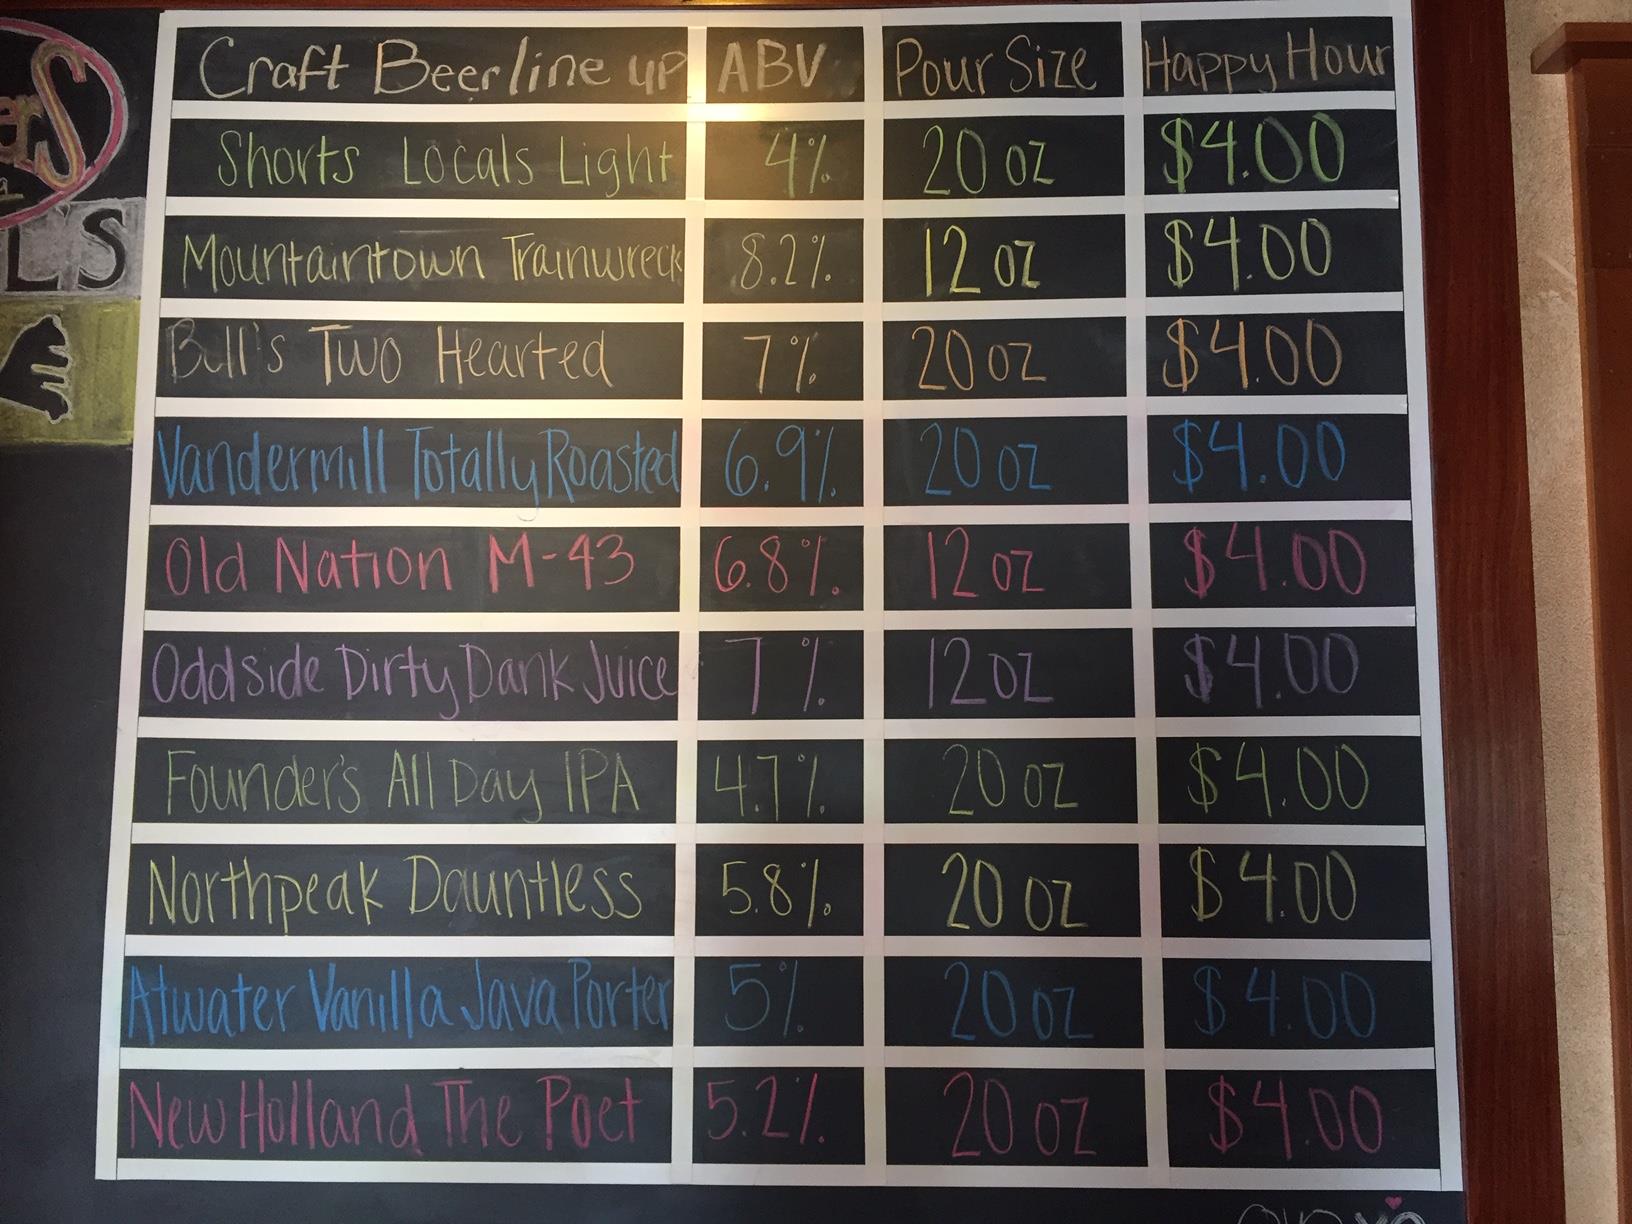 Craft Beer line up ABV Pour Size Happy Hour
Shorts Locals Light 4% 20 oz $4.00
Mountaintown Trainwreck 8.2% 12 oz $4.00
Bell's Two Hearted 7% 20 oz $4.00
Vandermill Totally Roasted 6.9% 20 oz $4.00
Old Nation M-43 6.8% 12 oz $4.00
Oddside Dirty Dank Juice 7% 12 oz $4.00
Founder's All Day IPA 4.7% 20 oz $4.00
Northpeak Dauntless 5.8% 20 oz $4.00
Atwater Vanilla Java Porter 5% 20 oz $4.00
New Holland The Poet 5.2% 20 oz $4.00